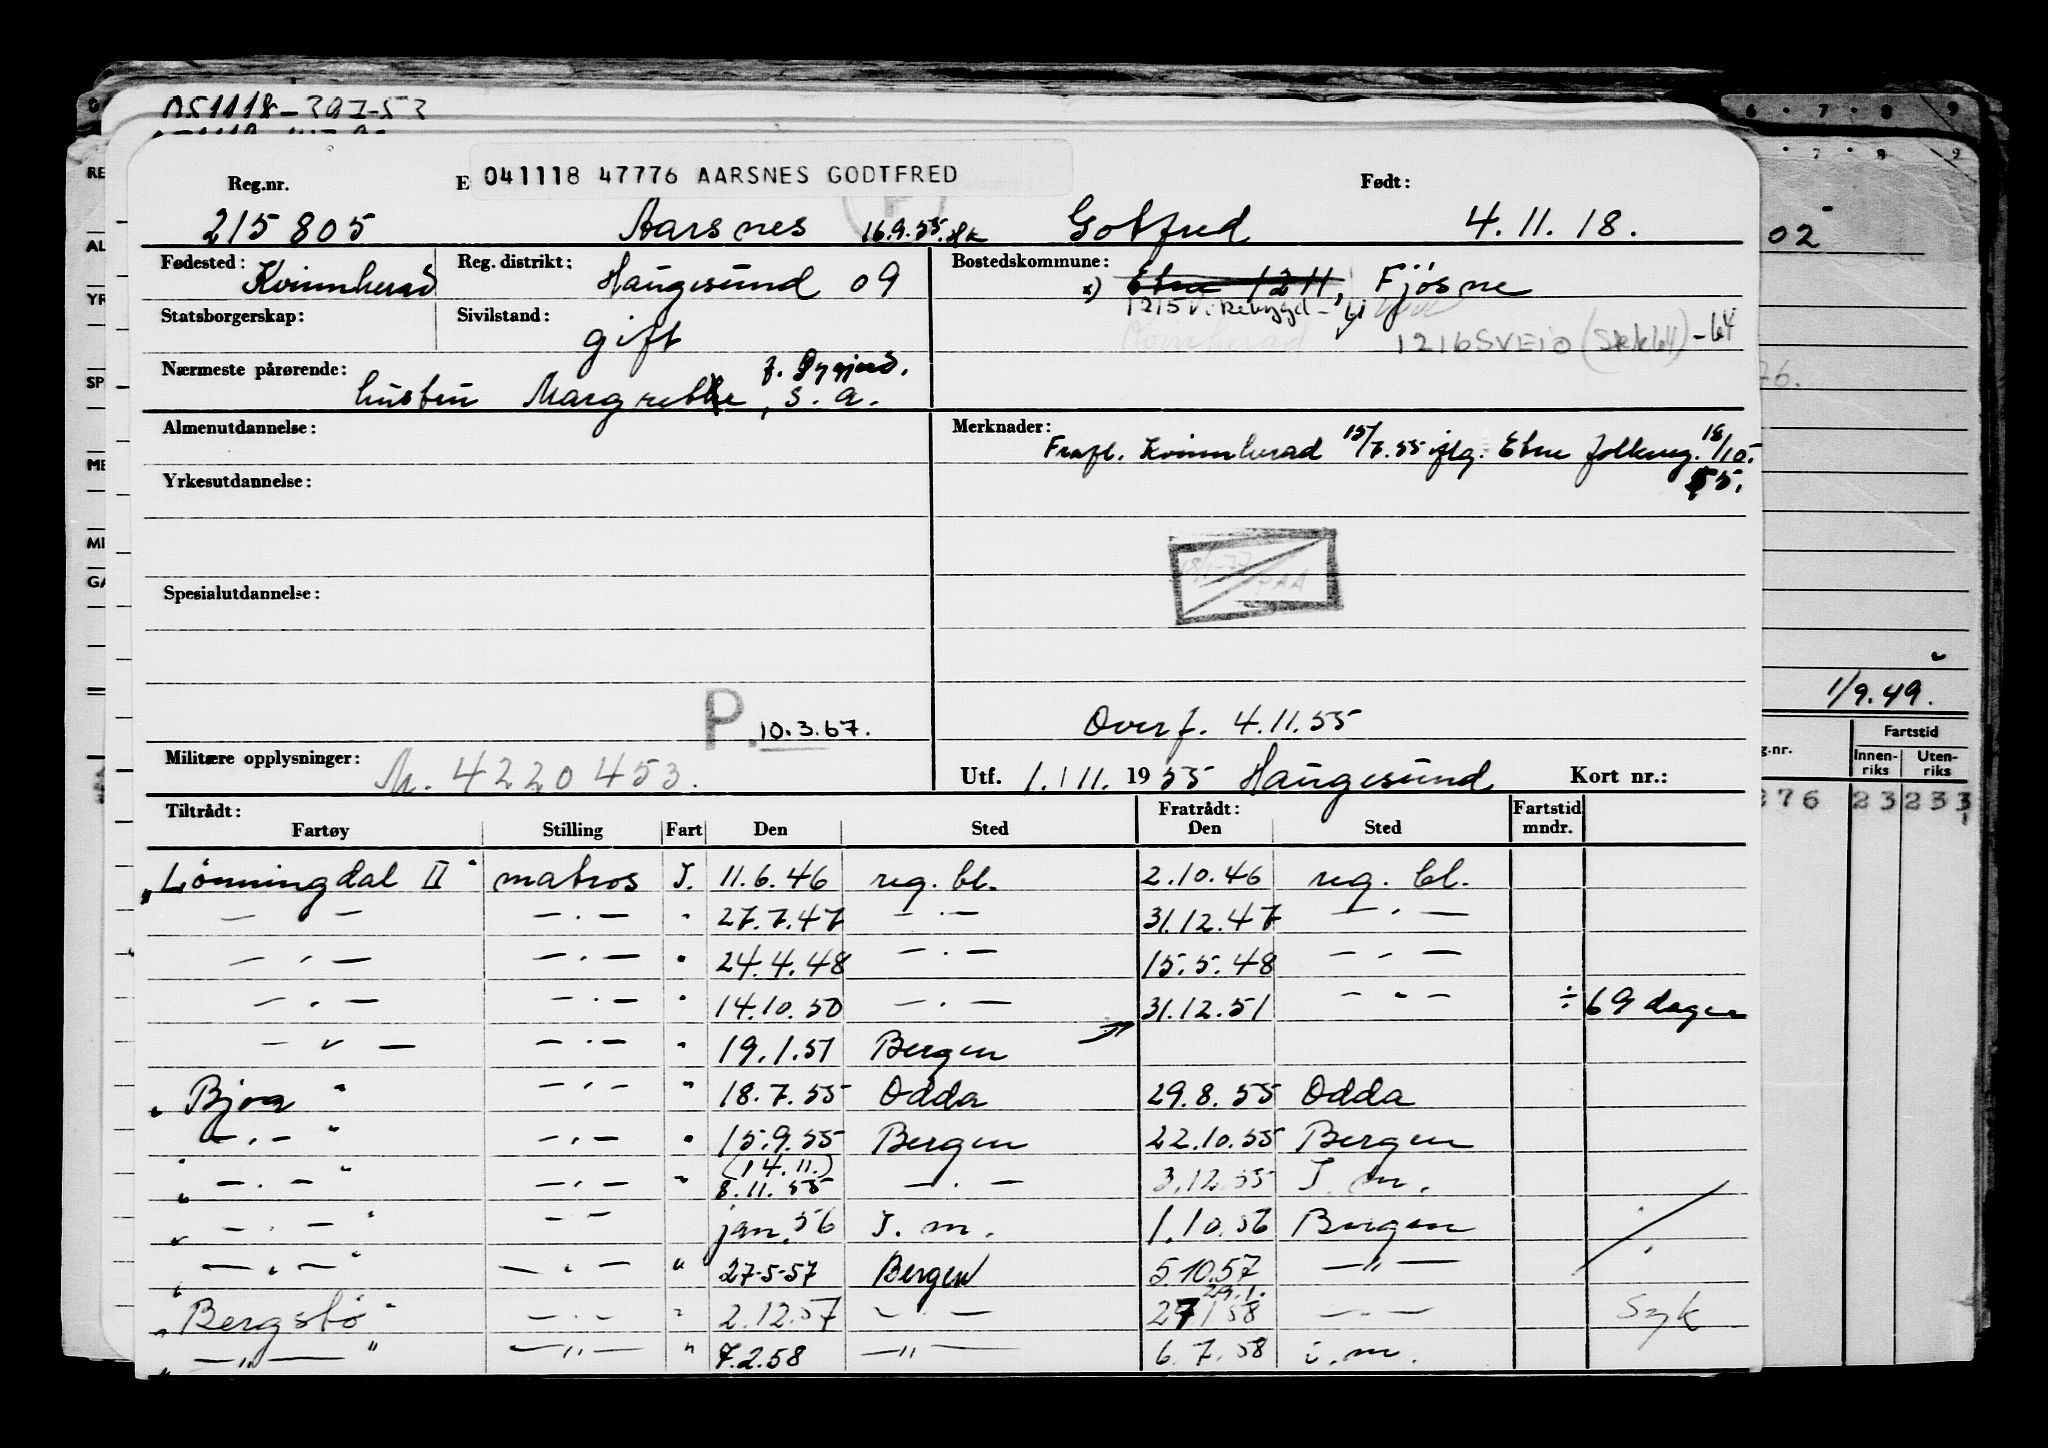 041118 47776 AARSNES GODTFRED
Reg.nr. E Født:
215805 Aarsnes 16.9.55. Gotfred 4.11.18.
Fødested: Kvinnherad Reg. distrikt: Haugesund 09 Bostedskommune: x) Etne 1211, Fjøsne
1215 Vikebygd - 61
Statsborgerskap: Sivilstand: gift Kvinnherad 1216 SVEIO - 64
Nærmeste pårørende: hustru Margrethe, s. a.
Almenutdannelse: Merknader: Frafl. Kvinnherad 15/7.55 iflg. Etne folkereg. 18/10.
55.
Yrkesutdannelse:
Spesialutdannelse:
P. 10.3.67. Overf. 4.11.55
Militære opplysninger: M. 4220453. Utf. 1. 11. 1955 Haugesund Kort nr.:
Tiltrådt: Fratrådt: Fartstid
Fartøy Stilling Fart Den Sted Den Sted mndr.
"Lønningdal II" matros I. 11.6.46 reg. bl. 2.10.46 reg. bl.
— " — — . — " 27.7.47 — . — 31.12.47 — . —
— . — — . — " 24.4.48 — . — 15.5.48 — . —
— . — — . — " 14.10.50 — . — 31.12.51 — " — ÷ 69 dager
— " — — . — " 19.1.51 Bergen
"Bjoa" — . — " 18.7.55 Odda 29.8.55 Odda
— . — " — . — " 15.9.55 Bergen 22.10.55 Bergen
(14.11.)
" — . — " — . — " 8.11.55 — . — 3.12.55 I. m.
" — . — " — " — jan. 56 I. m. 1.10.56 Bergen
" — . — " — . — " 27-5-57 Bergen 5.10.57 — " —
29.1.
"Bergstø" — . — " 2.12.57 — . — 27 1 58 — . — Syk
" — " — " — " — " 7.2.58 — " — 6.7.58 i. m.
02
76.
1/9.49.
g.nr. Fartstid
Innen-riks Uten-riks
276 23 233